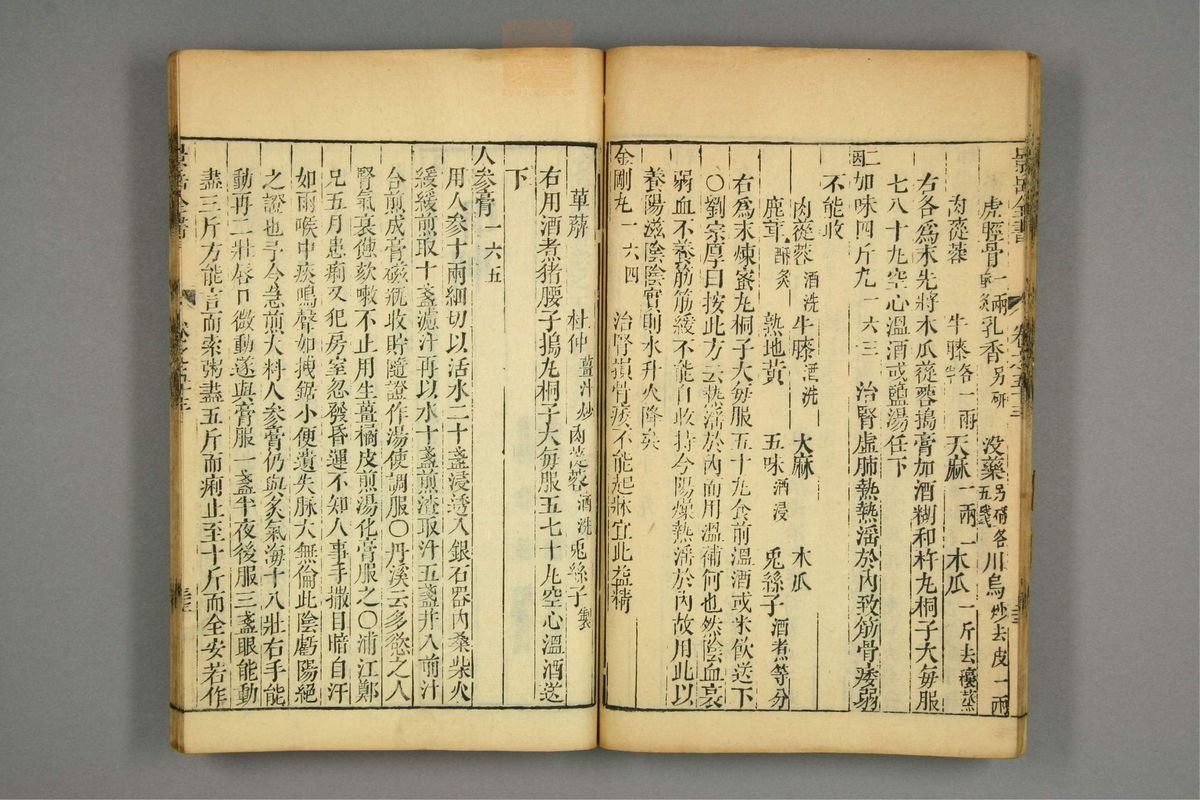 景岳全書
虎脛骨一兩酥炙 乳香另研 没藥另研各五錢 川烏炒去皮一兩
肉蓯蓉 牛膝各一兩 天麻一兩 木瓜一斤去穰蒸
右各爲末先將木瓜蓯蓉搗膏加酒糊和杵丸桐子大每服
七八十丸空心溫酒或鹽湯任下
二因如味四斤丸一六三 治腎虛肺熱熱滛於内致筋骨痿弱
不能收
肉蓯蓉酒洗 牛膝酒洗 大麻 木瓜
鹿茸酥炙 熟地黃 五味酒浸 兎絲子酒煮等分
右爲末煉蜜丸桐子大每服五十丸食前溫酒或米飲送下
〇劉宗厚曰按此方云熱滛於内而用溫補何也然陰血衰
弱血不養筋筋緩不能自收持今陽燥熱滛於内故用此以
養陽滋陰陰實則水升火降矣
金剛丸一六四 治腎損骨痿不能起牀宜此益精
萆薢 杜仲薑汁炒 肉蓯蓉酒洗 兎絲子製
右用酒煮猪腰子搗丸桐子大每服五七十丸空心溫酒送
下
人參膏一六五
用人參十兩細切以活水二十盞浸透入銀石器内桑柴火
緩緩煎取十盞濾汁再以水十盞煎渣取汁五盞并入前汁
合煎成膏磁瓶收貯隨證作湯使調服〇丹溪云多慾之人
腎氣衰憊欬嗽不止用生薑橘皮煎湯化膏服之〇浦江鄭
兄五月患痢又犯房室忽發昏運不知人事手撒目暗自汗
如雨喉中痰鳴聲如拽鋸小便遺失脉大無倫此陰虧陽絕
之證也予令急煎大料人參膏仍與炙氣海十八壯右手能
動再二壯唇口微動遂與膏服一盞半夜後服三盞眼能動
盡三斤方能言而索粥盡五斤而痢止至十斤而全安若作
景岳全書